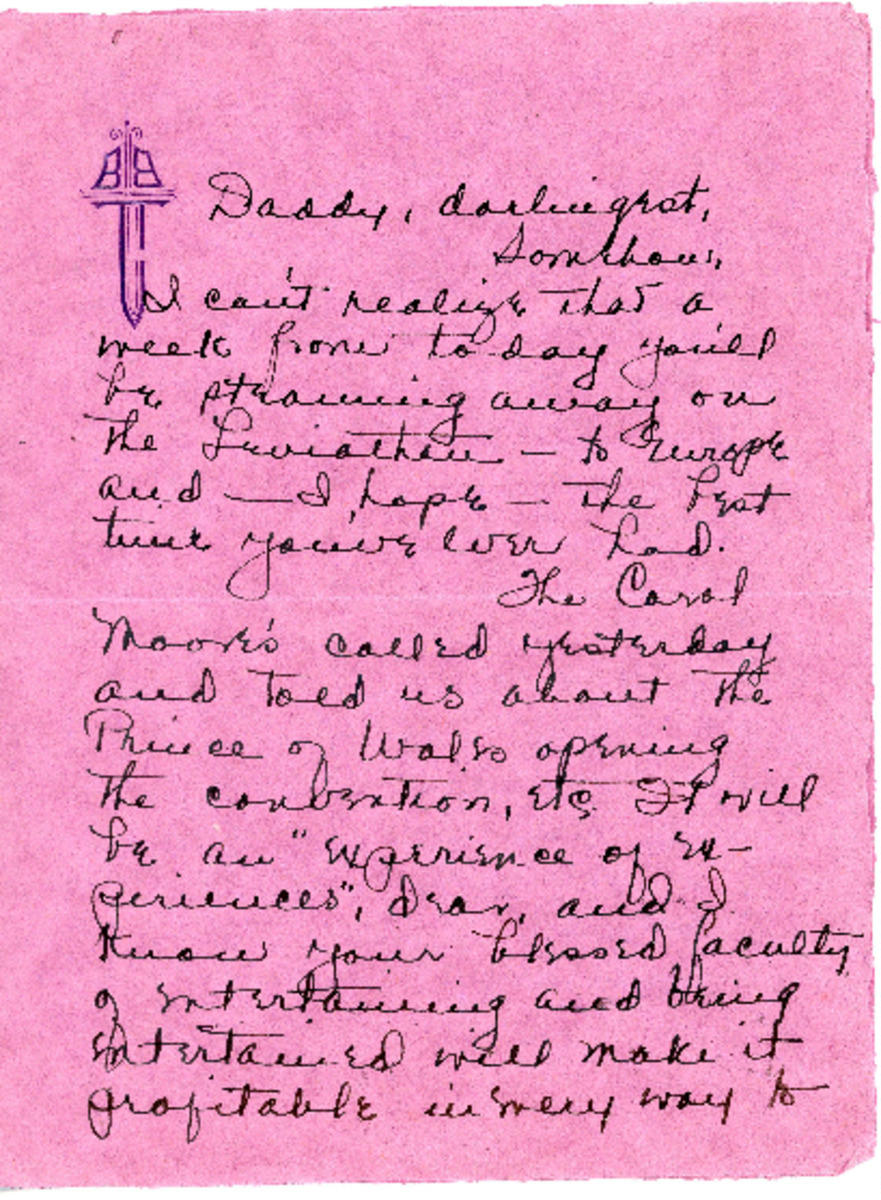 BB
Daddy, darlingest,
Somehow,
I can't realize that a
week from today you'll
be steaming away on
the Leviathan — to Europe
and — I hope — the best
time you've ever had.
The Carol
Moore's called yesterday
and told us about the
Prince of Wales opening
the convention, etc. It will
be an "experience of ex-
periences", dear, and I
know your blessed faculty
of entertaining and being
entertained will make it
profitable in every way to